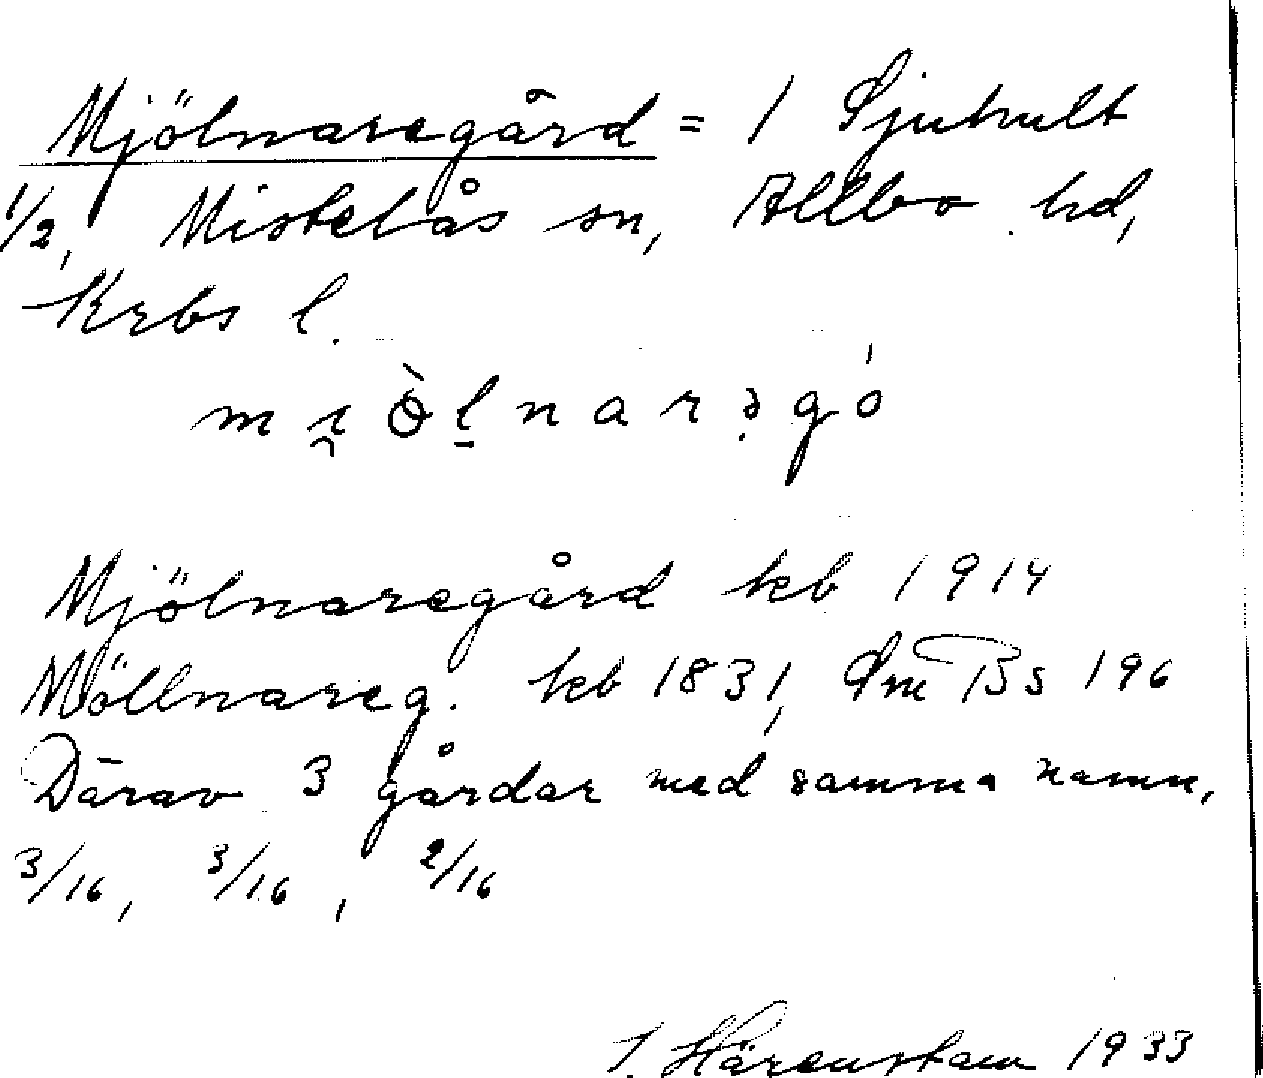 Mjölnaregård = 1 Sjuhult
1/2, Mistelås sn, Allbo hd,
Krbs l.
mi̯ȍl̠narəgó
Mjölnaregård kb 1914
Möllnareg. kb 1831, Sm Bs 196
Därav 3 gårdar med samma namn,
3/16, 3/16, 2/16
Härenstam 1933